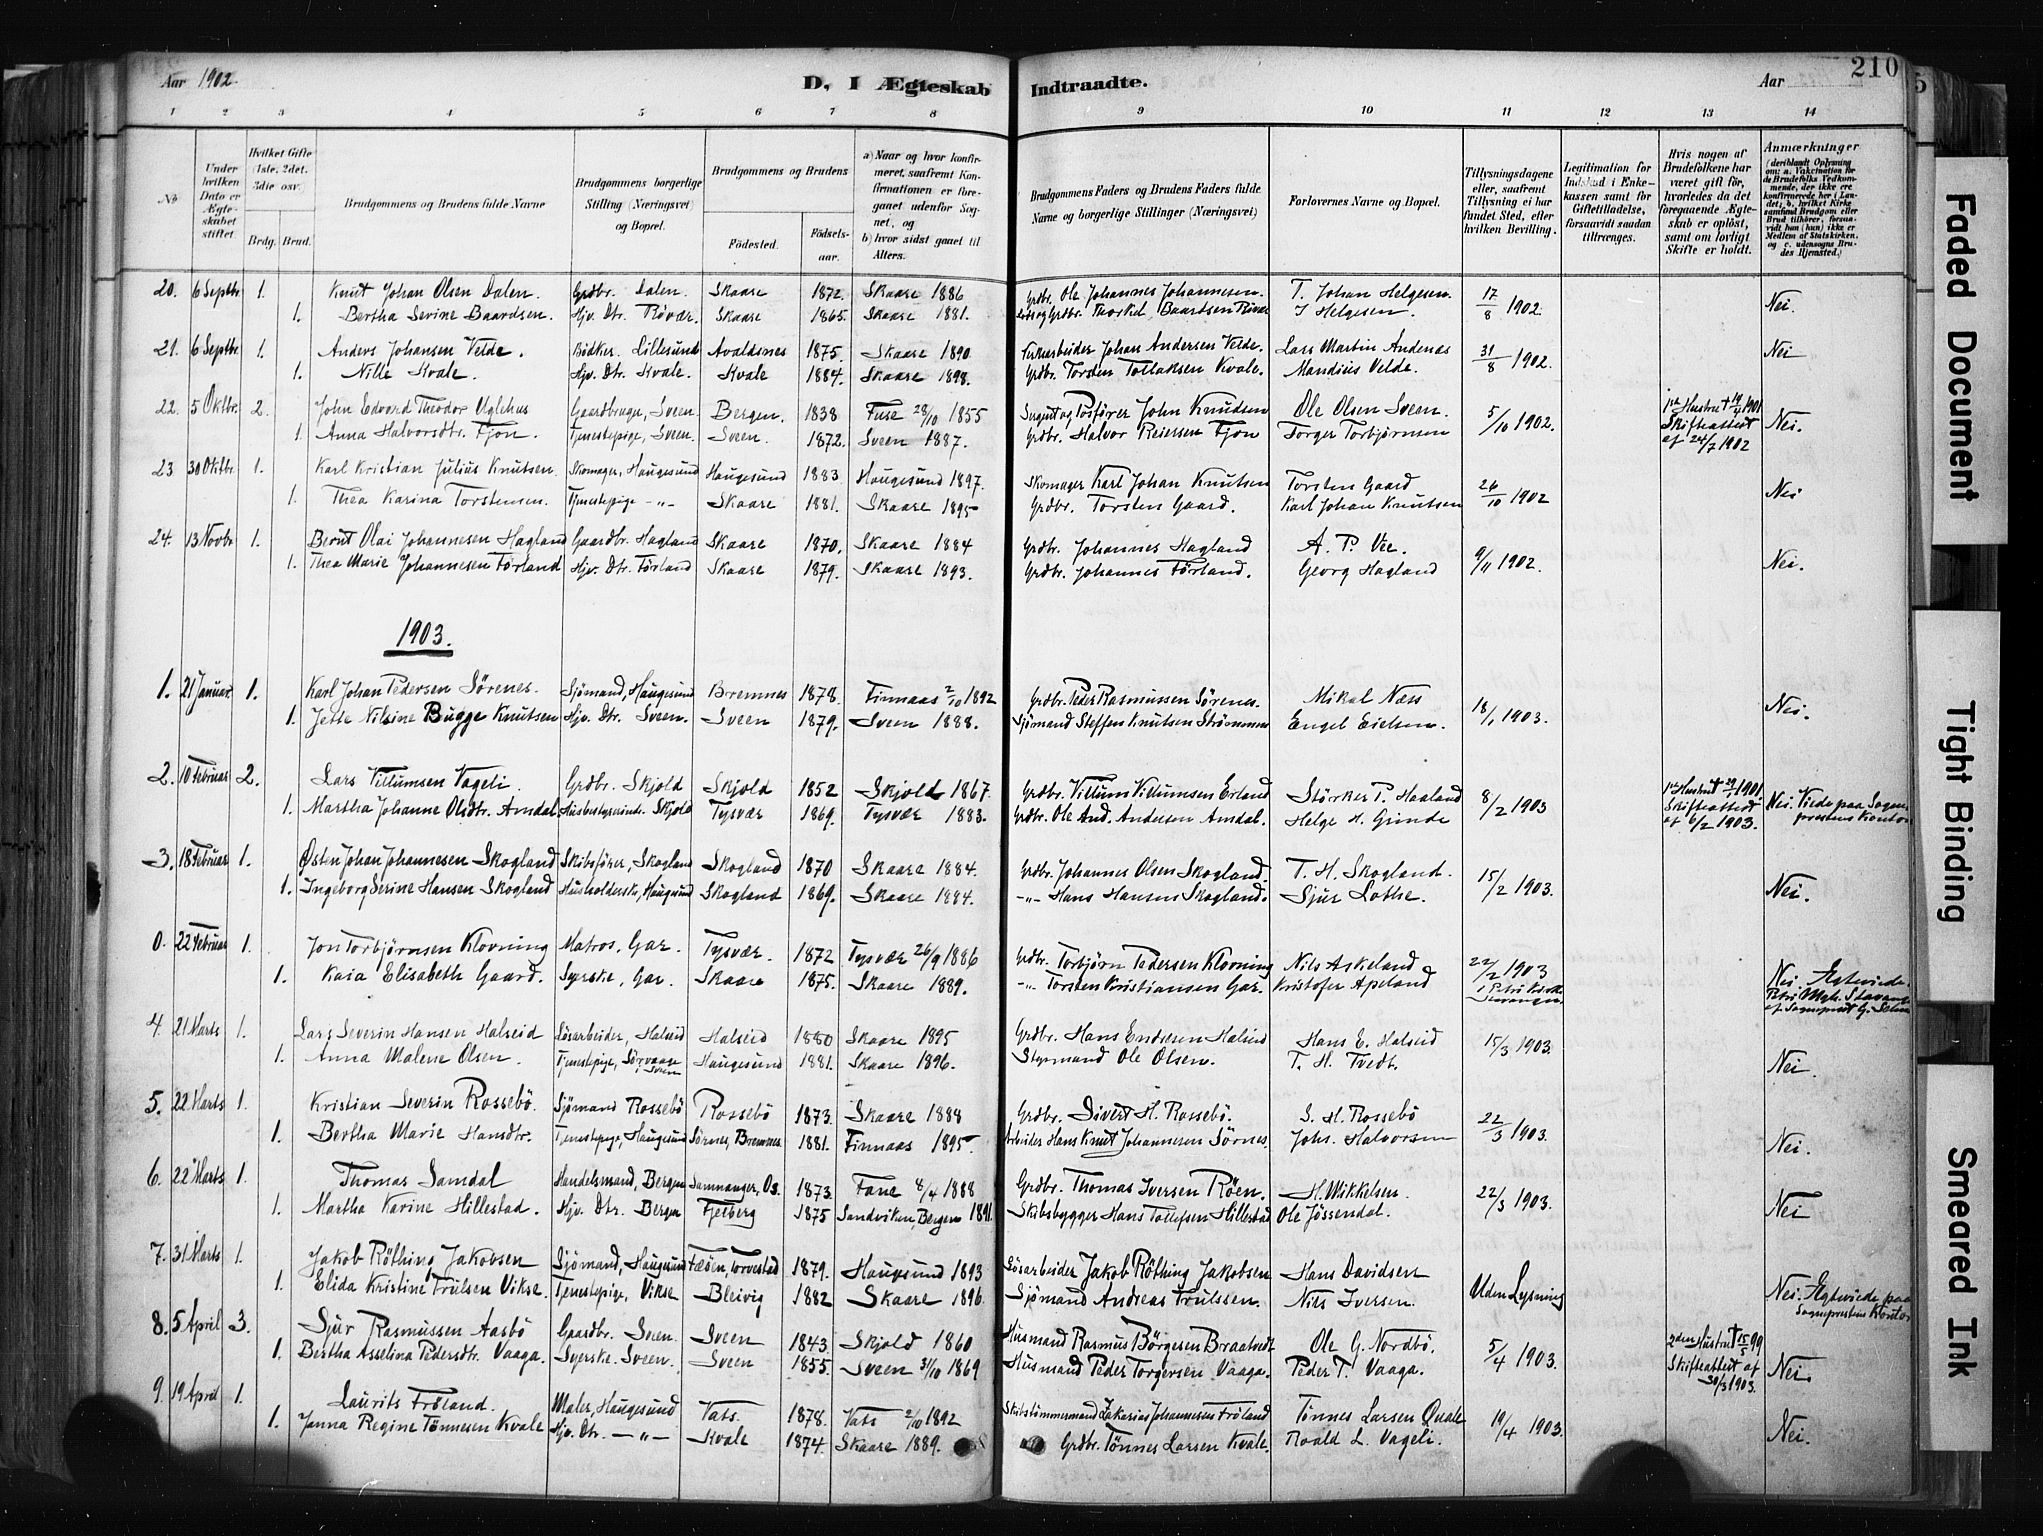 Aar 1902.
D. I Ægteskab Indtraadte.
Aar
210
5
1 2 3 4 5 6 7 8 9 10 11 12 13 14
No
Under hvilken Dato er Ægteskabet stiftet
Hvilket Gifte (1ste, 2det, 3die osv.)
Brdg. Brud.
Brudgommens og Brudens fulde Navne
Brudgommens borgerlige Stilling (Næringsvei) og Bopæl.
Brudgommens og Brudens
Fødested.
Fødselsaar.
a) Naar og hvor konfirmeret, saafremt Konfirmationen er foregaaet udenfor Sognet, og
b) hvor sidst gaaet til Alters.
Brudgommens Faders og Brudens Faders fulde Navne og borgerlige Stillinger (Næringsvei)
Forlovernes Navne og Bopæl.
Tillysningsdagene eller, saafremt Tillysning ei har fundet Sted, efter hvilken Bevilling.
Legitimation for Indskud i Enkekassen samt for Giftetilladelse, forsaavidt saadan tiltrænges.
Hvis nogen af Brudefolkene har været gift før, hvorledes da det foregaaende Ægteskab er opløst, samt om lovligt Skifte er holdt.
Anmærkninger
(deriblandt Oplysning om: a. Vakcination for de Brudefolks Vedkommende, der ikke ere konfirmerede her i Landet; b. hvilket Kirkesamfund Brudgom eller Brud tilhører, forsaavidt han (hun) ikke er Medlem af Statskirken, og c. udensogns Brudes Hjemsted.)
20. 6 Septbr 1. Knut Johan Olsen Dalen. Grdbr. Dalen. Skaare 1872. Skaare 1886 Grdbr. Ole Johannes Johannesen. T. Johan Helgesen. 17/8 1902. Nei.
1. Bertha Serine Baardsen. Hjv. Dtr. Røvær. Skaare 1865. Skaare 1881. Grdbr. Thorkel Baardsen Røvær J Helgesen.
21. 6 Septbr 1. Anders Johansen Velde. Bødker. Lillesund Avaldsnes 1875. Skaare 1890. Johan Andersen Velde. Lars Martin Andenæs 31/8 1902. Nei
1. Nille Kvale. Hjv. Dtr. Kvale. Kvale 1884. Skaare 1898. Grdbr. Torsten Tollaksen Kvale. Mandius Velde.
22. 5 Oktbr. 2. John Edvard Theodor Uglehus Gaardbruger, Sveen. Bergen. 1838 Fuse 28/10 1855 John Knudsen Ole Olsen Sveen. 5/10 1902. 1ste Hustru † 1901 Skifteattest af 24/7 1902 Nei.
1. Anna Halvorsdtr. Fjon. Tjenestepige, Sveen. Sveen. 1872. Sveen 1887. Grdbr. Halvor Reiersen Fjon Torger Torbjørnsen
23 30 Oktbr. 1. Karl Kristian Julius Knutsen. Skomager, Haugesund Haugesund 1883 Haugesund 1897. Skomager Karl Johan Knutsen Torsten Gaard 26/10 1902 Nei
1. Thea Karina Torstensen. Tjenestepige -"- Skaare 1881. Skaare 1895 Grdbr. Torsten Gaard. Karl Johan Knutsen
24. 13 Novbr 1. Bernt Olai Johannesen Hagland Gaardbr. Hagland Skaare 1870. Skaare 1884 Grdbr. Johannes Hagland A. P. Vee. 9/11 1902. Nei.
1. Thea Marie Johannesen Førland Hjv. Dtr. Førland Skaare 1879. Skaare 1893. Grdbr. Johannes Førland. Georg Hagland
1903.
1. 21 Januar. 1. Karl Johan Pedersen Sørenes. Sjømand, Haugesund Bremnes 1878. Finnaas 2/10 1892 Grdbr. Peder Rasmussen Sørenes. Mikal Næss 18/1 1903. Nei.
1. Jette Nilsine Bugge Knutsen Hjv. Dtr. Sveen. Sveen 1879. Sveen 1888. Sjømand Steffen Knutsen Strømmen Engel Eielsen.
2. 10 Februar 2. Lars Villumsen Vageli. Grdbr. Skjold Skjold 1852 Skjold 1867. Grdbr. Villum Villumsen Erland Størker T. Haaland 8/2 1903 1ste Hustru † 1901 Skifteattest af 6/2 1903. Nei. Viede paa Sogneprestens Kontor
1. Martha Johanne Olsdtr. Amdal Husbestyrerinde. Skjold Tysvær 1869. Tysvær 1883. Grdbr. Ole And. Andersen Amdal. Helge H. Grinde
3. 18 Februar 1. Østen Johan Johannesen Skogland Skibsfører, Skogland Skogland 1870 Skaare 1884. Grdbr. Johannes Olsen Skogland. T. H. Skogland. 15/2 1903. Nei.
1. Ingeborg Serine Hansen Skogland Husholderske, Haugesund Skogland 1869. Skaare 1884. -"- Hans Hansen Skogland. Sjur Lothe.
0. 22 Februar 1. Jon Torbjørnsen Klovning Matros, Gar. Tysvær. 1872 Tysvær 26/9 1886 Grdbr. Torbjørn Pedersen Klovning Nils Askeland 22/2 1903 i Petri Kirke Stavanger Nei. Egteviede Petri Mgh. Stavanger af Sogneprest G.
1. Kaia Elisabeth Gaard. Syerske, Gar. Skaare 1875. Skaare 1889. -"- Torsten Kristiansen Gar. Kristofer Apeland
4. 21 Marts 1. Lars Severin Hansen Halseid Løsarbeider, Halseid Halseid 1880 Skaare 1895 Grdbr. Hans Endresen Halseid Hans E. Halseid 15/3 1903. Nei.
1. Anna Malene Olsen. Tjenestepige, Sørvaage i Sveen Haugesund 1881. Skaare 1896. Styrmand Ole Olsen. T. H. Tvedt.
5. 22 Marts 1. Kristian Severin Rossebø. Sjømand Rossebø Rossebø 1873. Skaare 1888 Grdbr. Sivert H. Rossebø. S. H. Rossebø 22/3 1903. Nei.
1. Bertha Marie Hansdtr. Tjenestepige, Haugesund Sørnes, Bremnes 1881. Finnaas 1895. Arbeider Hans Knut Johannesen Sørnes. Johs. Halvorsen
6. 22 Marts 1. Thomas Samdal Handelsmand, Bergen Samnanger, Os. 1873. Fane 8/4 1888 Grdbr. Thomas Iversen Røen. H. Mikkelsen. 22/3 1903. Nei
1. Martha Karine Hillestad. Hjv. Dtr. Bergen Fjelberg 1875 Sandviken, Bergen 1891. Skibsbygger Hans Tollefsen Hillestad Ole Jøssendal.
7. 31 Marts 1. Jakob Røthing Jakobsen Sjømand, Haugesund Fæøen, Torvestad 1879. Haugesund 1893 Løsarbeider Jakob Røthing Jakobsen Hans Davidsen Uden Lysning Nei. Egteviede paa Sogneprestens Kontor
1. Elida Kristine Trulsen Vikse. Tjenestepige, Vikse Bleivig 1882 Skaare 1896. Sjømand Andreas Trulssen. Nils Iversen.
8. 5 April 3. Sjur Rasmussen Aasbø Gaardbr. Sveen. Sveen 1843. Skjold 1860 Husmand Rasmus Børgesen Braatvedt Ole G. Nordbø. 5/4 1903. 2den Hustru † 15/5 99 Skifteattest af 30/3 1903. Nei.
1. Bertha Asselina Pedersdtr. Vaaga. Syerske. Sveen. Sveen 1855. Sveen 31/10 1869 Husmand Peder Torgersen Vaaga. Peder T. Vaaga.
9. 19 April 1. Laurits Frøland. Maler, Haugesund Vats. 1878. Vats 2/10 1892 Skibstømmermand Zakarias Johannesen Frøland Tønnes Larsen Qvale 19/4 1903. Nei.
1. Janna Regine Tønnesen Kvale Hjv. Dtr. -"- Kvale 1874. Skaare 1889. Grdbr. Tønnes Larsen Kvale. Roald L. Vageli.
Faded Document
Tight Binding
Smeared Ink